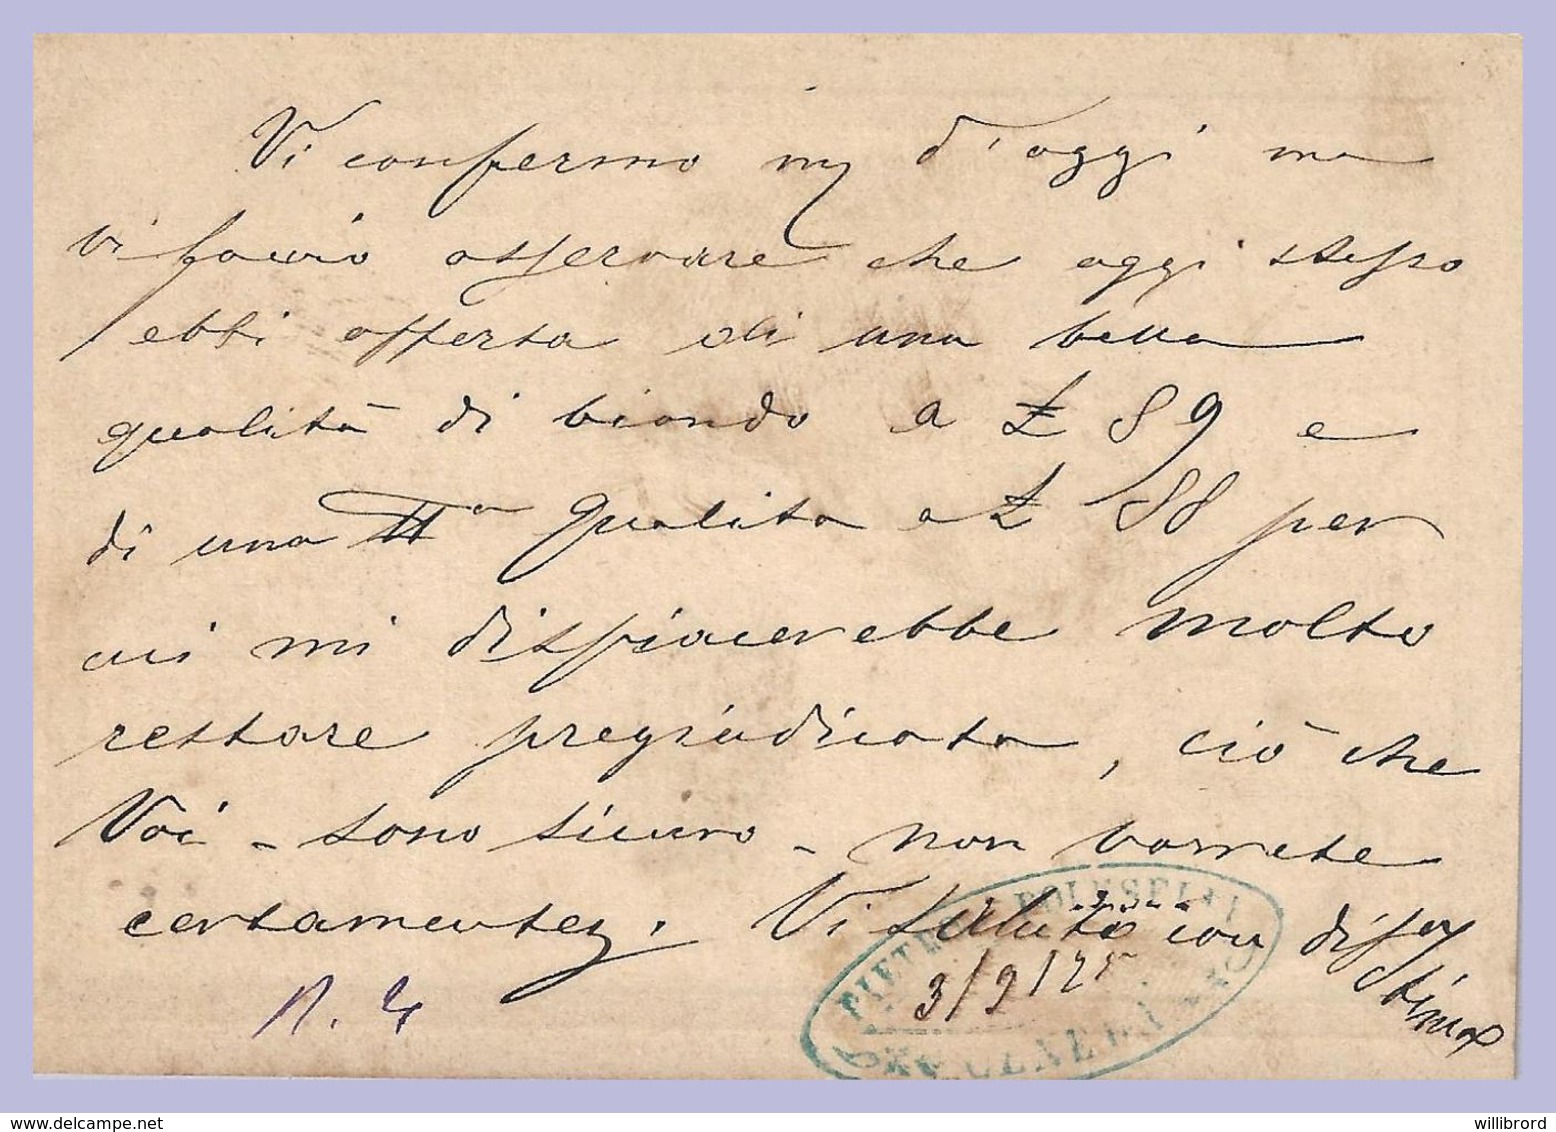 Vi confermo mg d'oggi ma
vi faccio osservare che oggi stesso
ebbi offerta di una bella
qualità di biondo a £ 89 e
di una IIa qualita a £ 88 per
cui mi dispiacerebbe molto
restare pregiudicato, ciò che
Voi - sono sicuro - non vorrete
certamente. Vi saluto con distima
PIETRO POLESELLI
3/9/75
N. 4
willibrord
delcampe.net